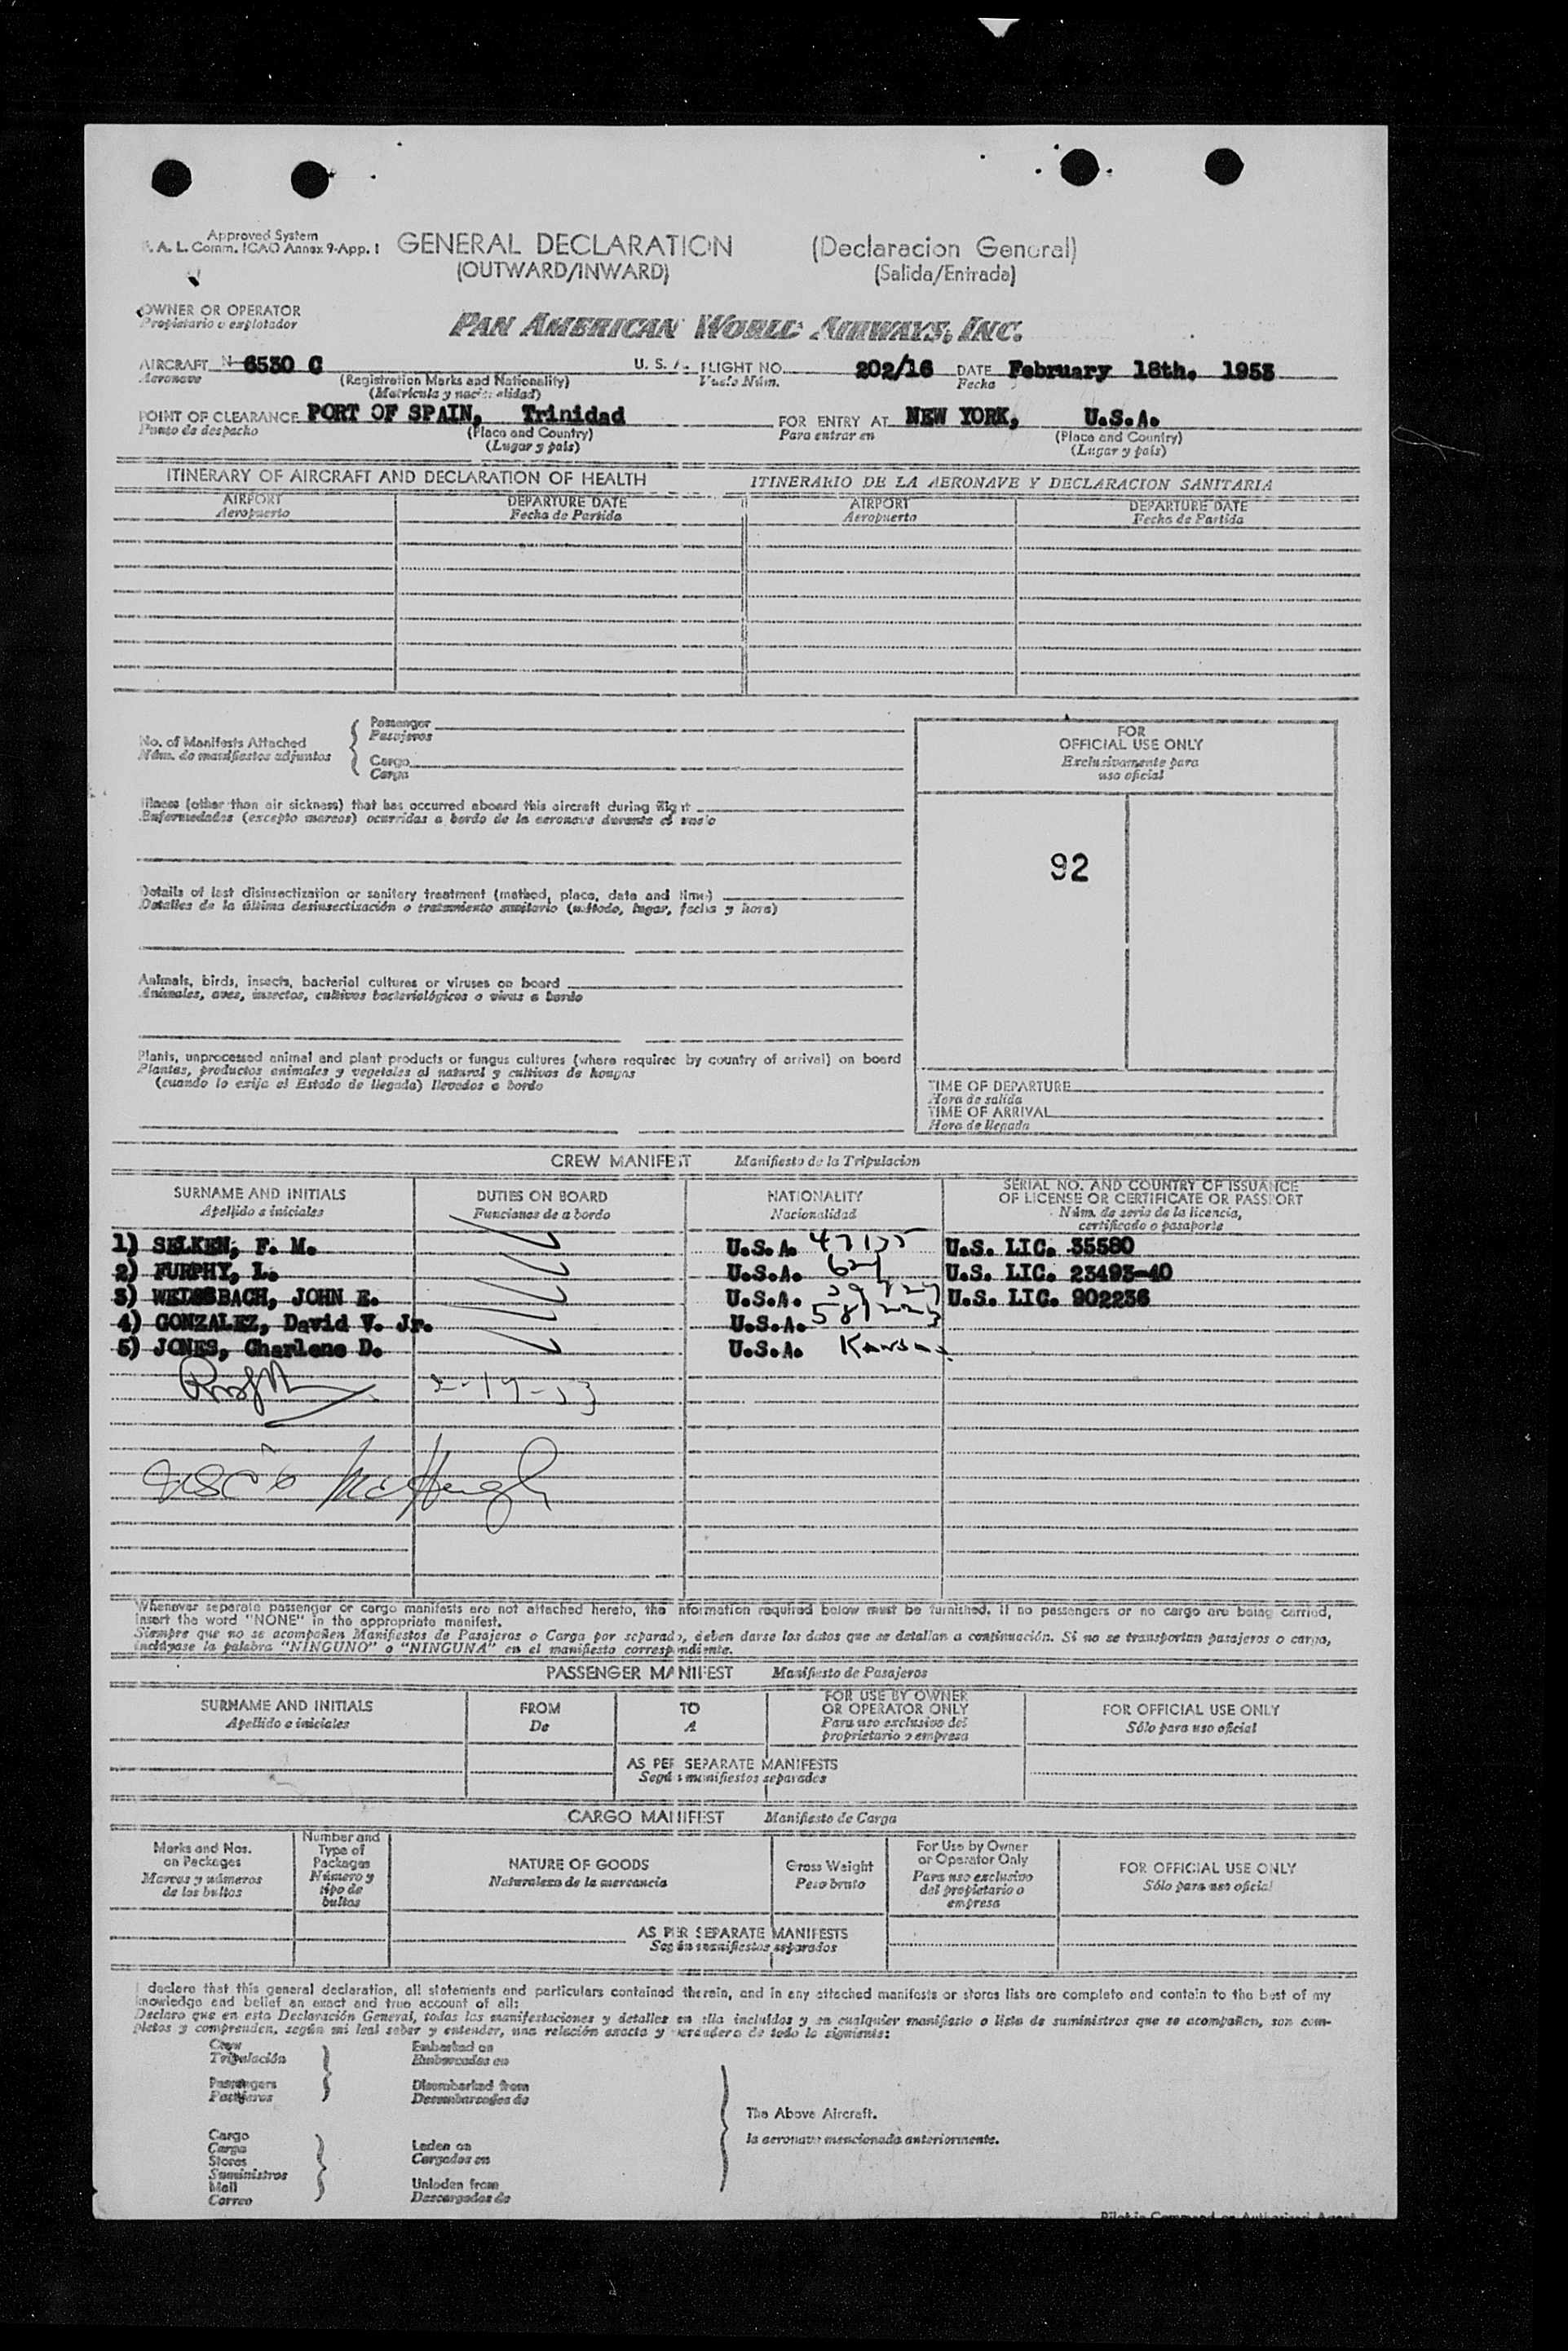 Approved System
F. A. L. Comm. ICAO Annex 9-App. I
GENERAL DECLARATION (Declaracion General)
(OUTWARD/INWARD) (Salida/Entrada)
OWNER OR OPERATOR
Propietario o explotador
PAN AMERICAN WORLD AIRWAYS, INC.
AIRCRAFT N 6530 C U. S. A. FLIGHT NO. 202/16 DATE February 18th. 1953
Aeronave (Registration Marks and Nationality) Vuelo Núm. Fecha
(Matricula y nacionalidad)
POINT OF CLEARANCE PORT OF SPAIN, Trinidad FOR ENTRY AT NEW YORK, U.S.A.
Punto de despacho (Place and Country) Para entrar en (Place and Country)
(Lugar y país) (Lugar y país)
ITINERARY OF AIRCRAFT AND DECLARATION OF HEALTH ITINERARIO DE LA AERONAVE Y DECLARACION SANITARIA
AIRPORT DEPARTURE DATE AIRPORT DEPARTURE DATE
Aeropuerto Fecha de Partida Aeropuerto Fecha de Partida
No. of Manifests Attached
Núm. de manifiestos adjuntos
Passenger
Pasajeros
Cargo
Carga
FOR
OFFICIAL USE ONLY
Exclusivamente para
uso oficial
Illness (other than air sickness) that has occurred aboard this aircraft during flight
Enfermedades (excepto mareos) ocurridas a bordo de la aeronave durante el vuelo
92
Details of last disinsectization or sanitary treatment (method, place, date and time)
Detalles de la última desinsectización o tratamiento sanitario (método, lugar, fecha y hora)
Animals, birds, insects, bacterial cultures or viruses on board
Animales, aves, insectos, cultivos bacteriológicos o virus a bordo
Plants, unprocessed animal and plant products or fungus cultures (where required by country of arrival) on board
Plantas, productos animales y vegetales al natural y cultivos de hongos
(cuando lo exija el Estado de llegada) llevados a bordo
TIME OF DEPARTURE
Hora de salida
TIME OF ARRIVAL
Hora de llegada
CREW MANIFEST Manifiesto de la Tripulacion
SURNAME AND INITIALS DUTIES ON BOARD NATIONALITY SERIAL NO. AND COUNTRY OF ISSUANCE
OF LICENSE OR CERTIFICATE OR PASSPORT
Apellido e iniciales Funciones de a bordo Nacionalidad Núm. de serie de la licencia,
certificado o pasaporte
1) SELKEN, F. M. U.S.A. U.S. LIC. 35580
2) FURPHY, L. U.S.A. U.S. LIC. 23493-40
3) WEISSBACH, JOHN E. U.S.A. U.S. LIC. 902236
4) GONZALEZ, David V. Jr. U.S.A.
5) JONES, Charlene D. U.S.A. Kansas
2-19-53
Whenever separate passenger or cargo manifests are not attached hereto, the information required below must be furnished. If no passengers or no cargo are being carried,
insert the word "NONE" in the appropriate manifest.
Siempre que no se acompañen Manifiestos de Pasajeros o Carga por separado, deben darse los datos que se detallan a continuación. Si no se transportan pasajeros o carga,
inclúyase la palabra "NINGUNO" o "NINGUNA" en el manifiesto correspondiente.
PASSENGER MANIFEST Manifiesto de Pasajeros
SURNAME AND INITIALS FROM TO FOR USE BY OWNER
OR OPERATOR ONLY FOR OFFICIAL USE ONLY
Apellido e iniciales De A Para uso exclusivo del
proprietario o empresa Sólo para uso oficial
AS PER SEPARATE MANIFESTS
Según manifiestos separados
CARGO MANIFEST Manifiesto de Carga
Marks and Nos.
on Packages
Marcas y números
de los bultos
Number and
Type of
Packages
Número y
tipo de
bultos
NATURE OF GOODS
Naturaleza de la mercancia
Gross Weight
Peso bruto
For Use by Owner
or Operator Only
Para uso exclusivo
del propietario o
empresa
FOR OFFICIAL USE ONLY
Sólo para uso oficial
AS PER SEPARATE MANIFESTS
Según manifiestos separados
I declare that this general declaration, all statements and particulars contained therein, and in any attached manifests or stores lists are complete and contain to the best of my
knowledge and belief an exact and true account of all:
Declaro que en esta Declaración General, todas las manifestaciones y detalles en ella incluídos y en cualquier manifiesto o lista de suministros que se acompañen, son com-
pletos y comprenden, según mi leal saber y entender, una relación exacta y verdadera de todo lo siguiente:
Crew
Tripulación
Passengers
Pasajeros
Embarked on
Embarcados en
Disembarked from
Desembarcados de
Cargo
Carga
Stores
Suministros
Mail
Correo
Laden on
Cargados en
Unladen from
Descargados de
The Above Aircraft.
la aeronave mencionada anteriormente.
Pilot in Command or Authorized Agent